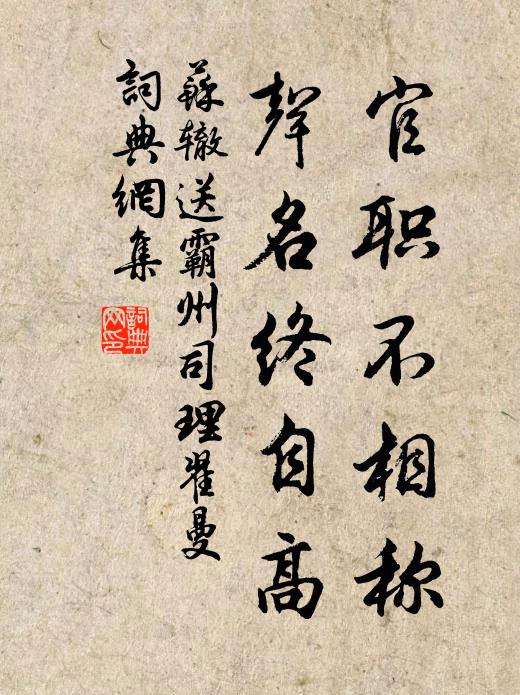 官职不相称
聲名终自高
蘇辙送霸州司理翟曼
詞典網集
詞典
网印